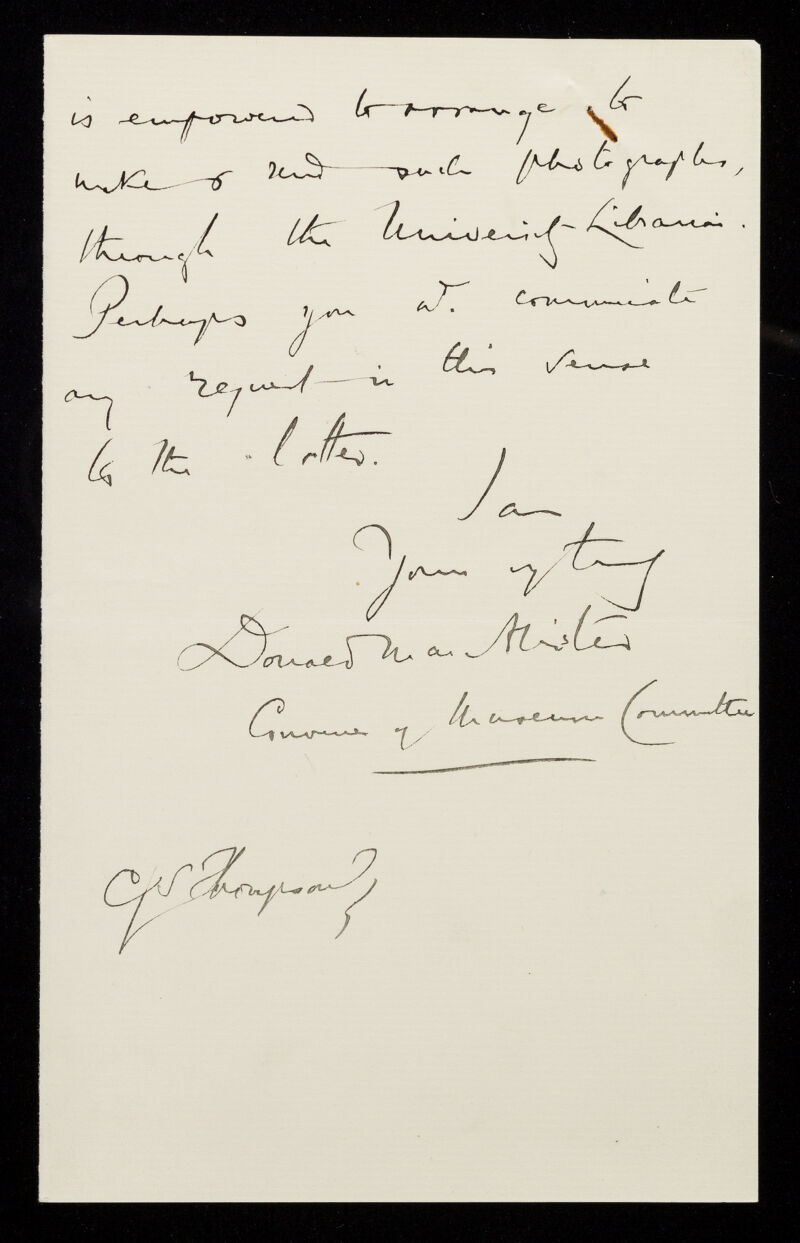 is empowered to arrange to
make & send such photographs,
through the University Librarian.
Perhaps you wd. communicate
any request in this sense
to the latter.
I am
Yours vy truly
Donald MacAlister
Convener of Museum Committee
CJS Thompson